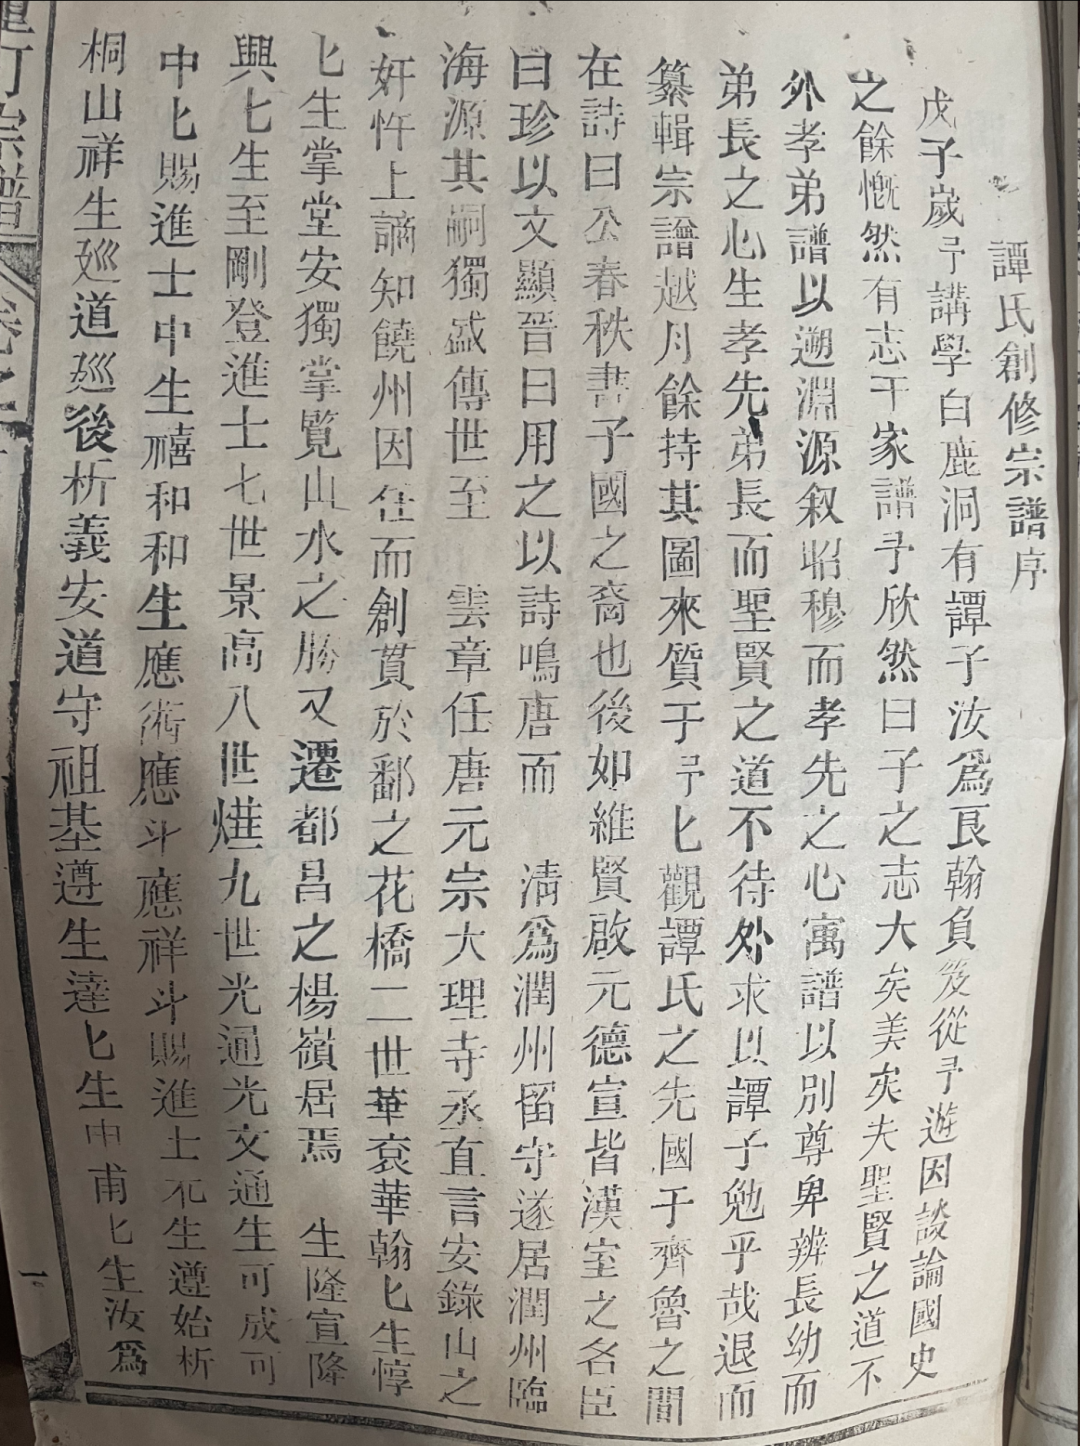 譚氏創修宗譜序
戊子歲予講學白鹿洞有譚子汝爲艮翰負笈從予遊因談論國史
之餘慨然有志于家譜予欣然曰子之志大矣美矣夫聖賢之道不
外孝弟譜以遡淵源叙昭穆而孝先之心寓譜以別尊卑辨長幼而
弟長之心生孝先弟長而聖賢之道不待外求以譚子勉乎哉退而
纂輯宗譜越月餘持其圖來質于予匕觀譚氏之先國于齊魯之間
在詩曰公春秋書子國之裔也後如維賢啟元德宣皆漢室之名臣
曰珍以文顯晉曰用之以詩鳴唐而 清爲潤州留守遂居潤州臨
海源其嗣獨盛傳世至 雲章任唐元宗大理寺丞直言安錄山之
奸忤上謫知饒州因在而創貫於鄱之花橋二世華袞華翰匕生惇
匕生掌堂安獨掌覽山水之勝又遷都昌之楊嶺居焉 生隆宣降
興匕生至剛登進士七世景高八世㷸九世光通光文通生可成可
中匕賜進士中生禧和和生應術應斗應祥斗賜進士不生遵始析
桐山祥生廵道廵後析義安道守祖基遵生達匕生申甫匕生汝爲
重訂宗譜
卷之
一